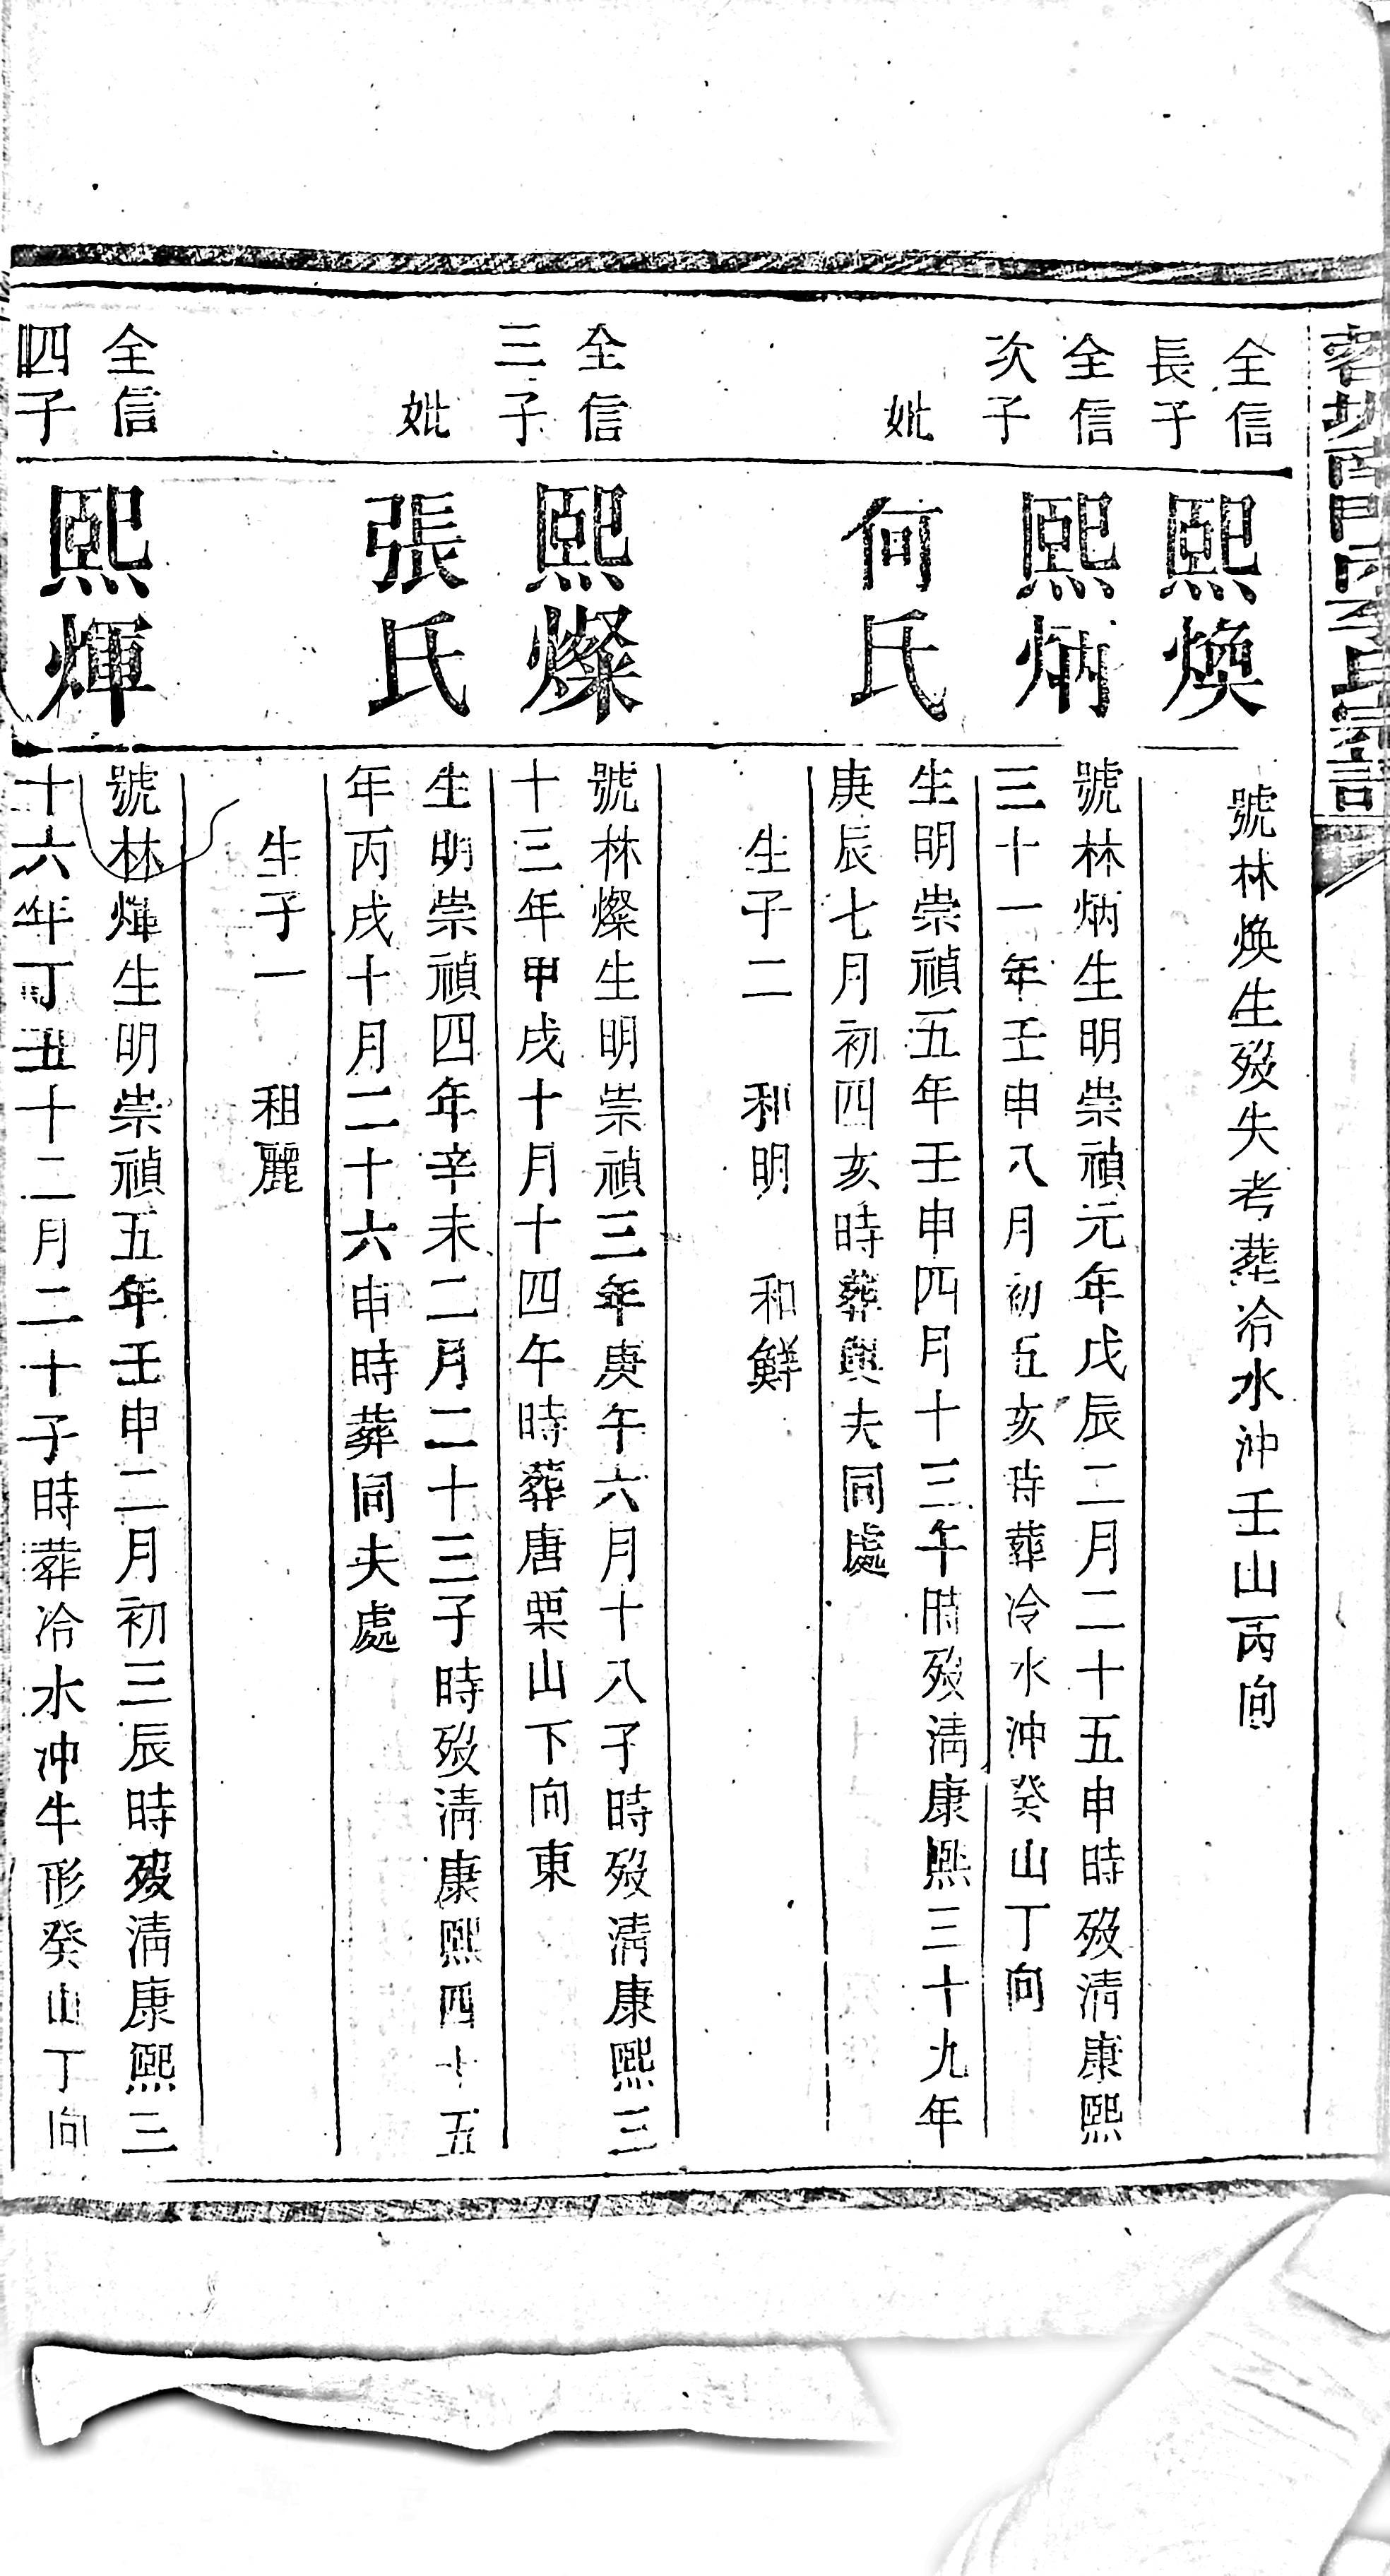 全信
長子
熙煥
號林煥生殁失考葬冷水沖壬山丙向
全信
次子
熙炳
號林炳生明崇禎元年戊辰二月二十五申時殁淸康熙
三十一年壬申八月初五亥時葬冷水沖癸山丁向
妣
何氏
生明崇禎五年壬申四月十三午時殁淸康熙三十九年
庚辰七月初四亥時葬與夫同處
生子二　和明　和鮮
全信
三子
熙燦
號林燦生明崇禎三年庚午六月十八子時殁淸康熙三
十三年甲戌十月十四午時葬唐栗山下向東
妣
張氏
生明崇禎四年辛未二月二十三子時殁淸康熙四十五
年丙戌十月二十六申時葬同夫處
生子一　租麗
全信
四子
熙煇
號林煇生明崇禎五年壬申二月初三辰時殁淸康熙三
十六年丁丑十二月二十子時葬冷水沖牛形癸山丁向